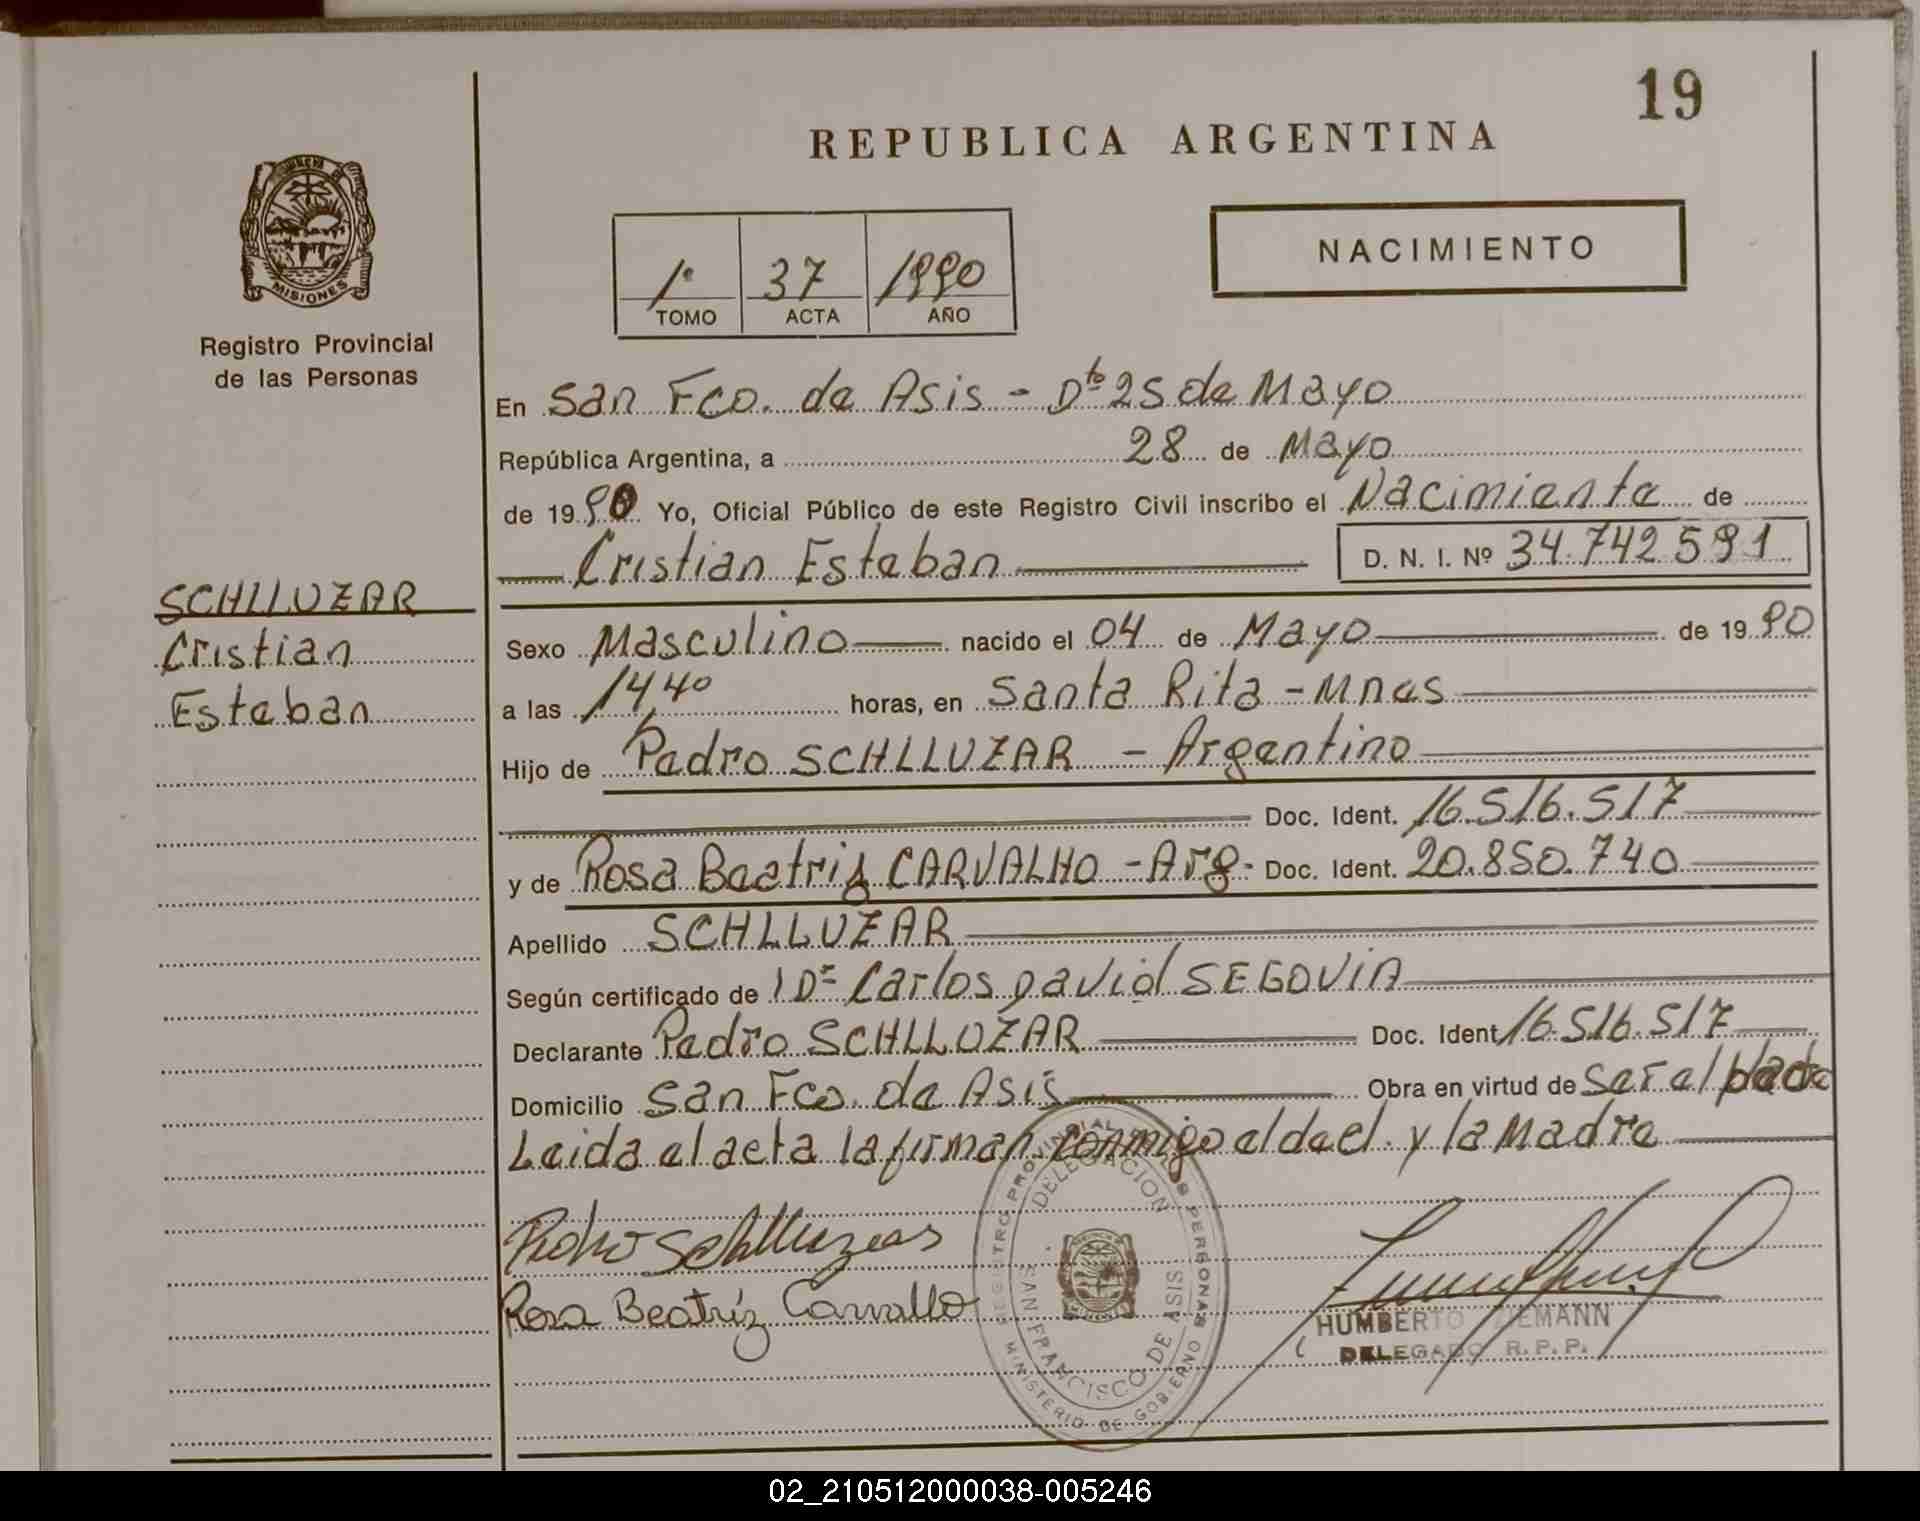 19
REPUBLICA ARGENTINA
MISIONES
Registro Provincial
de las Personas
1º 37 1990
TOMO ACTA AÑO
NACIMIENTO
En San Fco. de Asis - Dto 25 de Mayo
República Argentina, a 28 de Mayo
de 1990 Yo, Oficial Público de este Registro Civil inscribo el Nacimiento de
Cristian Esteban D. N. I. Nº 34.742.591
SCHLLUZAR
Cristian
Esteban
Sexo Masculino nacido el 04 de Mayo de 1990
a las 14,40 horas, en Santa Rita - Mnes
Hijo de Pedro SCHLLUZAR - Argentino
Doc. Ident. 16.516.517
y de Rosa Beatriz CARVALHO - Arg- Doc. Ident. 20.850.740
Apellido SCHLLUZAR
Según certificado de Dr Carlos David SEGOVIA
Declarante Pedro SCHLLUZAR Doc. Ident. 16.516.517
Domicilio San Fco. de Asis Obra en virtud de Ser el padre
Leida el acta la firman conmigo el decl. y la Madre
Rosa Beatríz Carvallo
REGISTRO PROVINCIAL DE LAS PERSONAS
DELEGACION
SAN FRANCISCO DE ASIS
MINISTERIO DE GOBIERNO
HUMBERTO ZIEMANN
DELEGADO R.P.P.
02_210512000038-005246